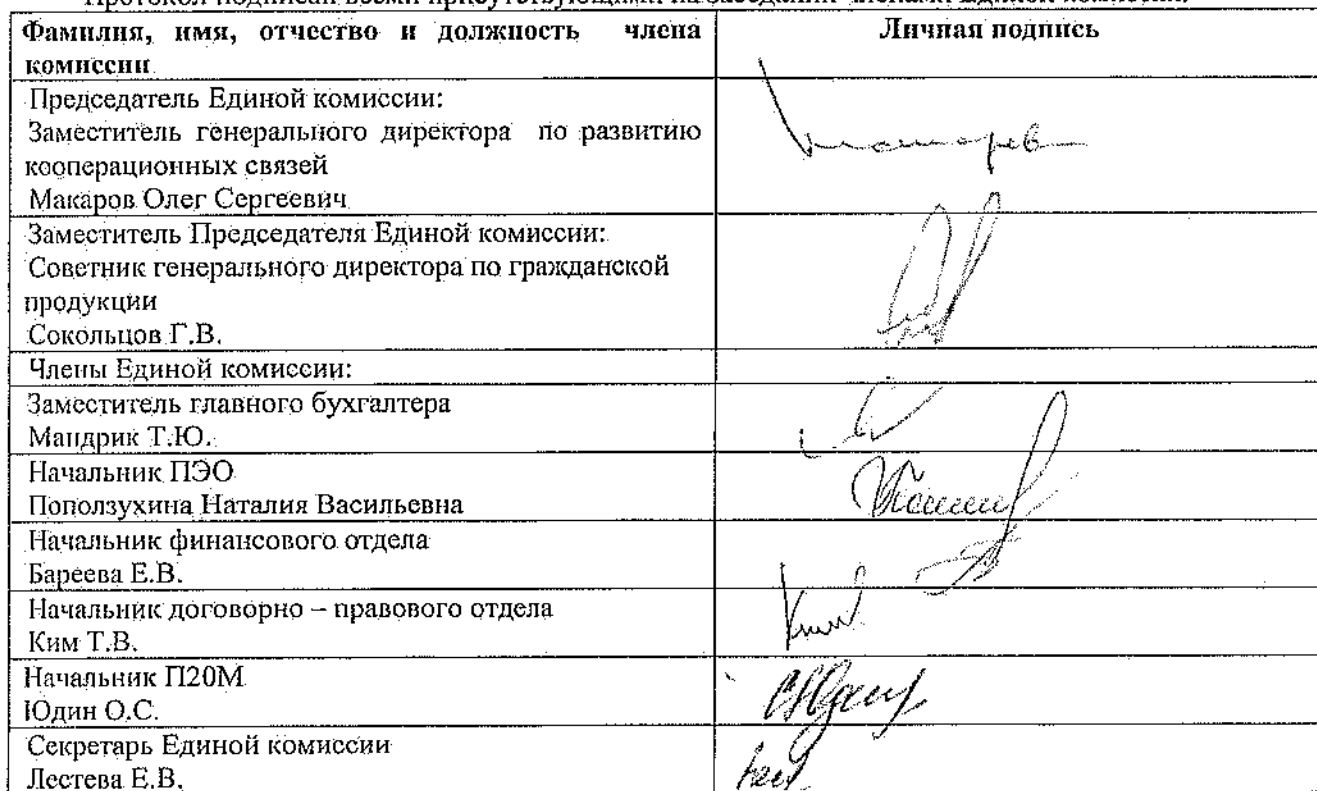 Протокол подписан всеми присутствующими на заседании членами Единой комиссии.
Фамилия, имя, отчество и должность члена
комиссии
Личная подпись
Председатель Единой комиссии:
Заместитель генерального директора по развитию
кооперационных связей
Макаров Олег Сергеевич
Заместитель Председателя Единой комиссии:
Советник генерального директора по гражданской
продукции
Сокольцов Г.В.
Члены Единой комиссии:
Заместитель главного бухгалтера
Мандрик Т.Ю.
Начальник ПЭО
Поползухина Наталия Васильевна
Начальник финансового отдела
Бареева Е.В.
Начальник договорно – правового отдела
Ким Т.В.
Начальник П20М
Юдин О.С.
Секретарь Единой комиссии
Лестева Е.В.